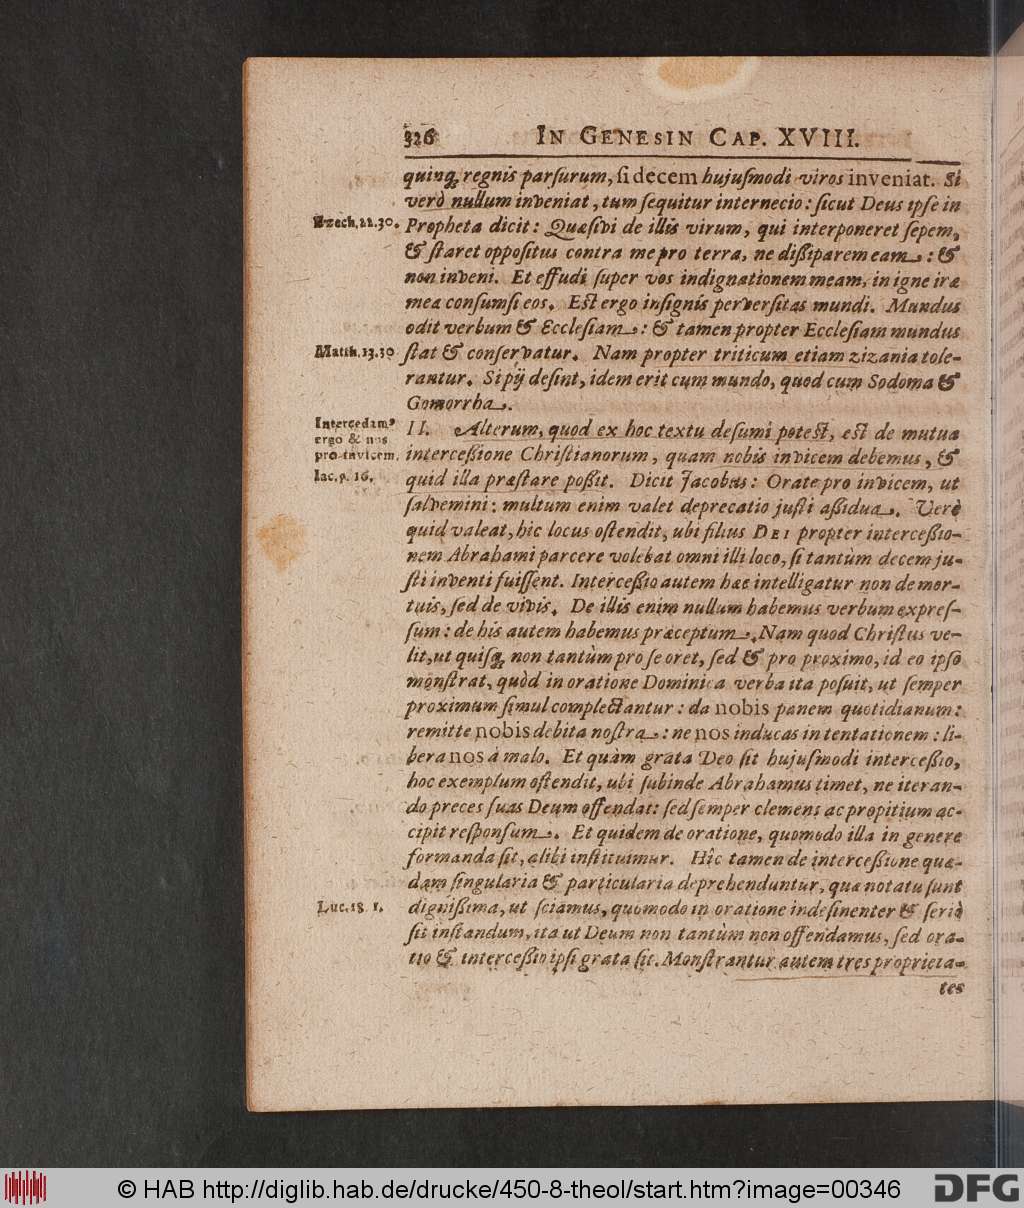 326 IN GENESIN CAP. XVIII.
quinq; regnis parsurum, si decem hujusmodi viros inveniat. Si
verò nullum inveniat, tum sequitur internecio: sicut Deus ipse in
Ezech. 22. 30. Propheta dicit: Quæsivi de illis virum, qui interponeret sepem,
& staret oppositus contra me pro terra, ne dissiparem eam: &
non inveni. Et effudi super vos indignationem meam, in igne iræ
meæ consumsi eos. Est ergo insignis perversitas mundi. Mundus
odit verbum & Ecclesiam: & tamen propter Ecclesiam mundus
Matth. 13. 30 stat & conservatur. Nam propter triticum etiam zizania tole-
rantur. Si pij desint, idem erit cum mundo, quod cum Sodoma &
Gomorrha.
Intercedam9 II. Alterum, quod ex hoc textu desumi potest, est de mutua
ergo & nos
pro invicem. intercessione Christianorum, quam nobis invicem debemus, &
Iac. 5. 16. quid illa præstare possit. Dicit Jacobus: Orate pro invicem, ut
salvemini: multum enim valet deprecatio justi assidua. Verò
quid valeat, hic locus ostendit, ubi filius DEI propter intercessio-
nem Abrahami parcere volebat omni illi loco, si tantùm decem ju-
sti inventi fuissent. Intercessio autem hæc intelligatur non de mor-
tuis, sed de vivis. De illis enim nullum habemus verbum expres-
sum: de his autem habemus præceptum. Nam quod Christus ve-
lit, ut quisq; non tantùm pro se oret, sed & pro proximo, id eo ipso
monstrat, quòd in oratione Dominica verba ita posuit, ut semper
proximum simul complectantur: da nobis panem quotidianum:
remitte nobis debita nostra: ne nos inducas in tentationem: li-
bera nos à malo. Et quàm grata Deo sit hujusmodi intercessio,
hoc exemplum ostendit, ubi subinde Abrahamus timet, ne iteran-
do preces suas Deum offendat: sed semper clemens ac propitium ac-
cipit responsum. Et quidem de oratione, quomodo illa in genere
formanda sit, alibi instituimur. Hîc tamen de intercessione quæ-
dam singularia & particularia deprehenduntur, quæ notatu sunt
Luc. 18. 1. dignissima, ut sciamus, quomodo in oratione indesinenter & seriò
sit instandum, ita ut Deum non tantùm non offendamus, sed ora-
tio & intercessio ipsi grata sit. Monstrantur autem tres proprieta-
tes
© HAB http://diglib.hab.de/drucke/450-8-theol/start.htm?image=00346
DFG